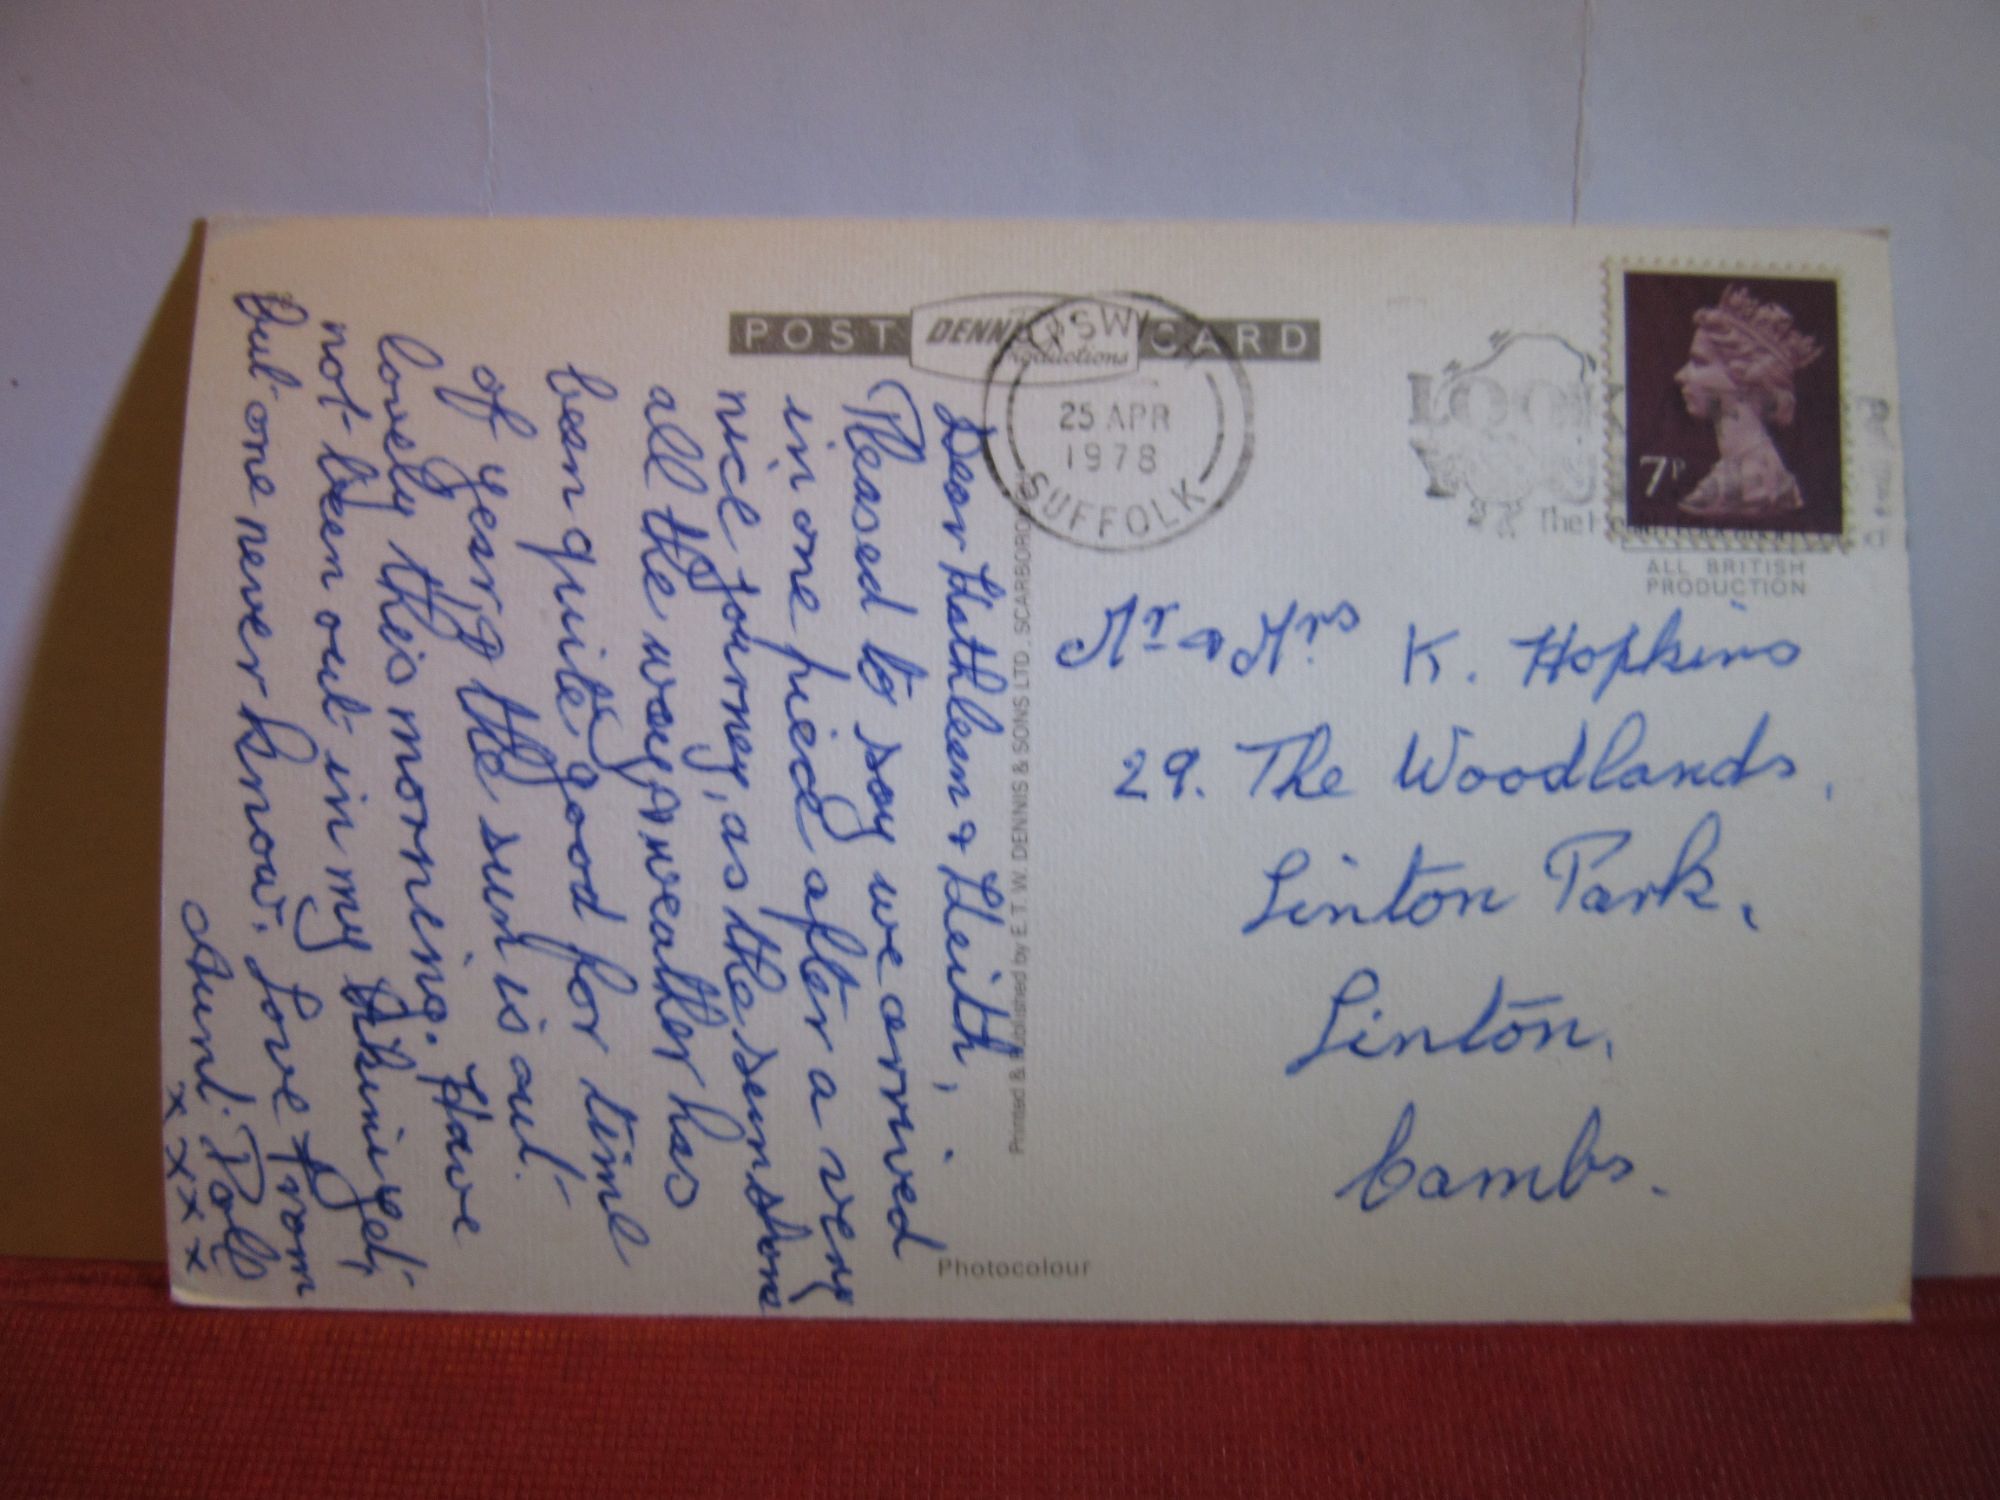 POST CARD
DENNIS
Productions
IPSWICH
25 APR
1978
SUFFOLK
The
7P
ALL BRITISH
PRODUCTION
Dear Kathleen & Keith,
Pleased to say we arrived
in one piece after a very
nice journey, as the sun shone
all the way, & weather has
been quite good for time
of year, & the sun is out.
lovely this morning. Have
not been out in my bikini yet,
But one never know. Love from
Aunt. Poll
x x x x
Printed & Published by E. T. W. DENNIS & SONS LTD., SCARBOROUGH
Mr & Mrs K. Hopkins
29. The Woodlands,
Linton Park,
Linton,
Cambs.
Photocolour